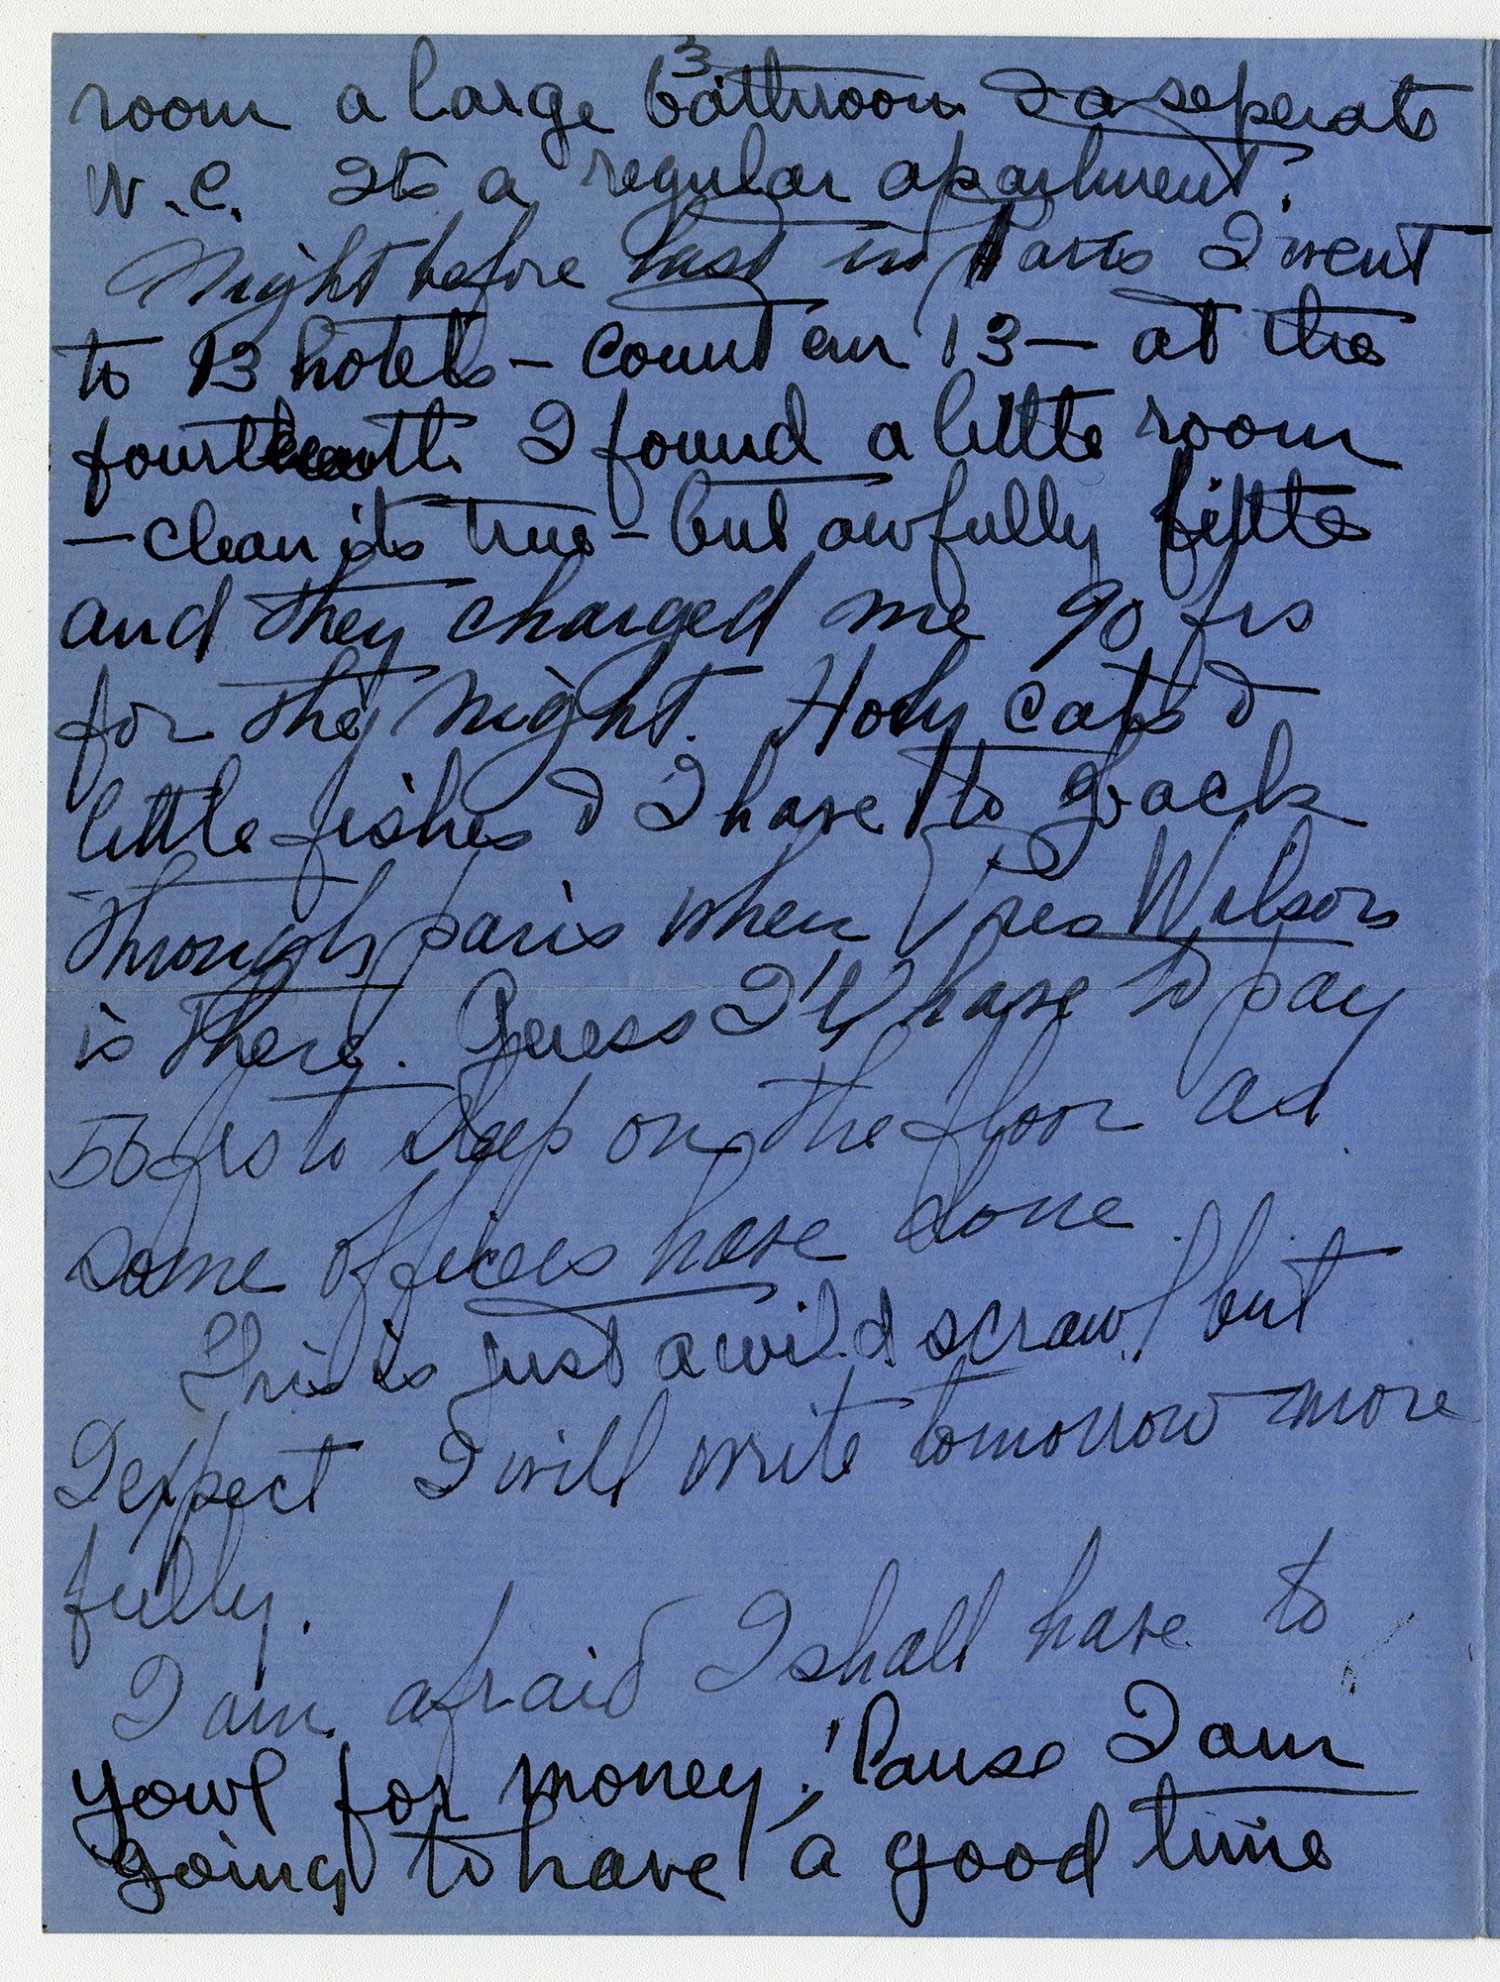 3
room a large bathroom & a seperate
W.C. Its a regular apartment.
Night before last in Paris I went
to 13 hotels – count em 13 – at the
fourteenth I found a little room
– clean its true – but awfully little
and they charged me 90 frs
for the night. Holy cats &
little fishes & I have to go back
through paris when Pres Wilson
is there. Guess I'll have to pay
50 frs to sleep on the floor as
some officers have done.
This is just a wild scrawl but
I expect I will write tomorrow more
fully.
I am afraid I shall have to
yowl for money! 'Cause I am
going to have a good time